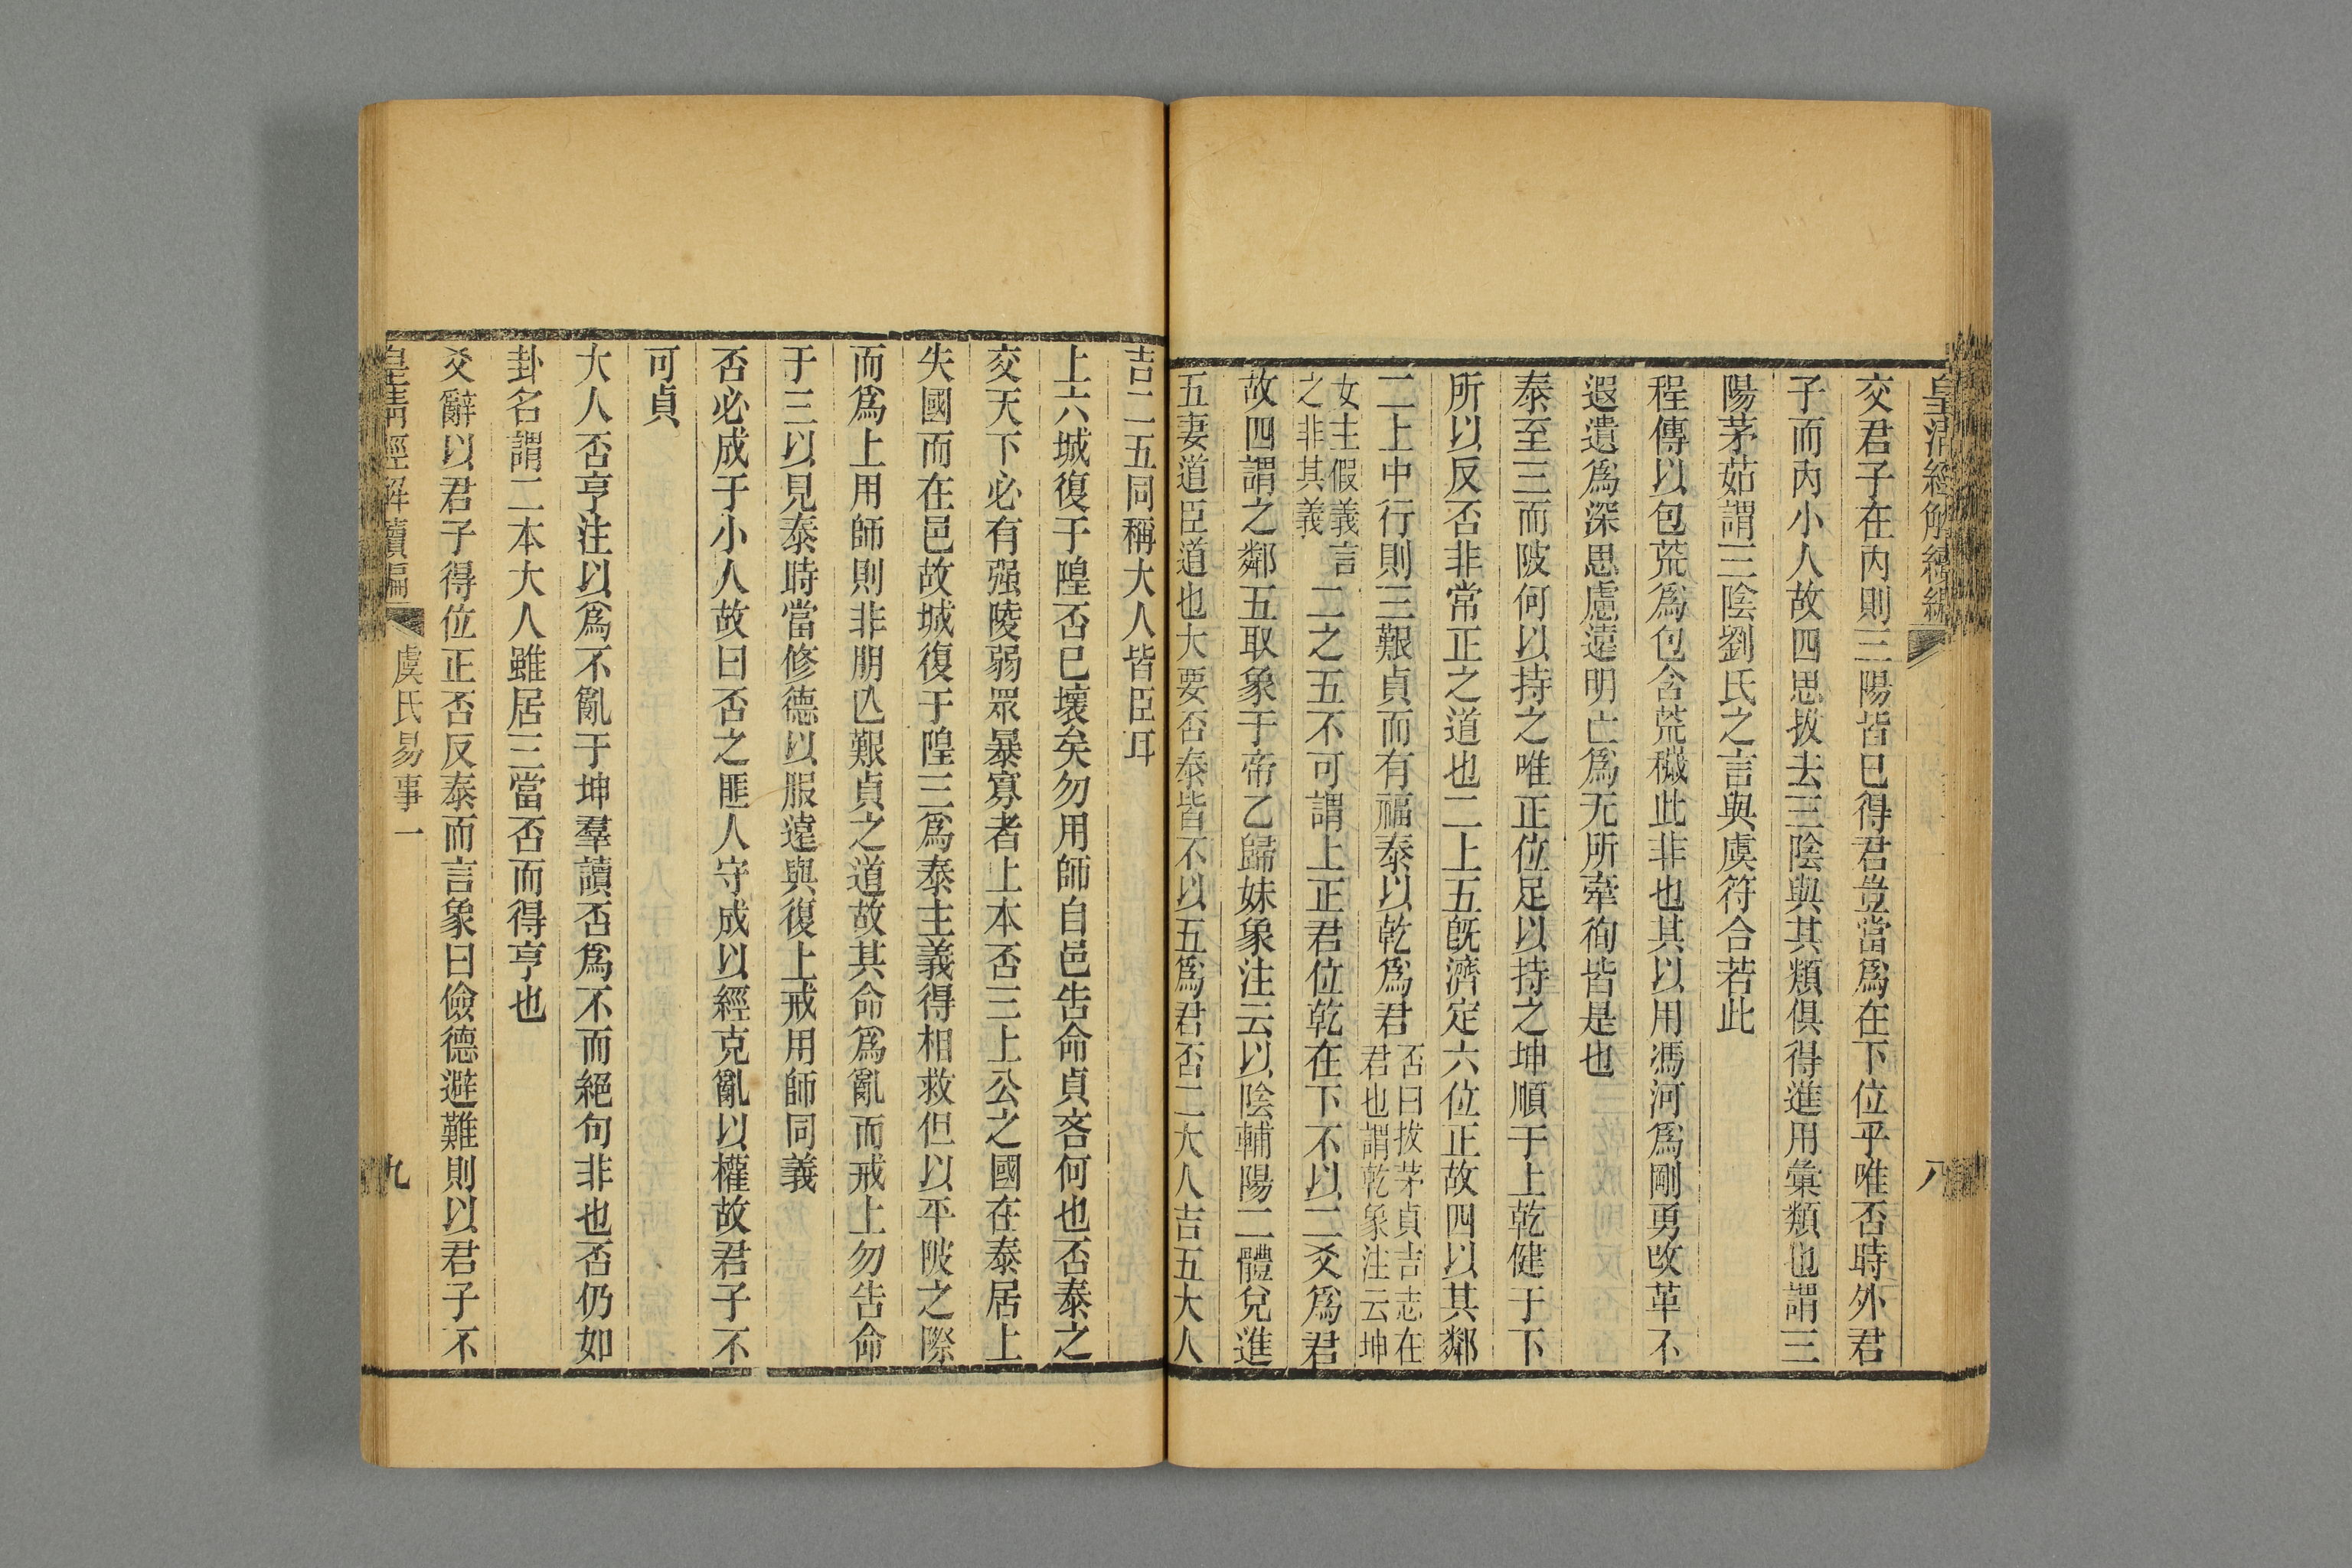 皇清經解續編 八
交君子在內則三陽皆已得君豈當爲在下位乎唯否時外君
子而內小人故四思拔去三陰與其類俱得進用彙類也謂三
陽茅茹謂三陰劉氏之言與虞符合若此
程傳以包荒爲包含荒穢此非也其以用馮河爲剛勇改革不
遐遺爲深思慮遠明亡爲无所牽徇皆是也
泰至三而陂何以持之唯正位足以持之坤順于上乾健于下
所以反否非常正之道也二上五旣濟定六位正故四以其鄰
二上中行則三艱貞而有福泰以乾爲君否曰拔茅貞吉志在君也謂乾象注云坤
女主假義言之非其義二之五不可謂上正君位乾在下不以二爻爲君
故四謂之鄰五取象于帝乙歸妹象注云以陰輔陽二體兌進
五妻道臣道也大要否泰皆不以五爲君否二大人吉五大人
吉二五同稱大人皆臣耳
上六城復于隍否已壞矣勿用師自邑告命貞吝何也否泰之
交天下必有强陵弱眾暴寡者上本否三上公之國在泰居上
失國而在邑故城復于隍三爲泰主義得相救但以平陂之際
而爲上用師則非朋匹艱貞之道故其命爲亂而戒上勿告命
于三以見泰時當修德以服遠與復上戒用師同義
否必成于小人故曰否之匪人守成以經克亂以權故君子不
可貞
大人否亨注以爲不亂于坤羣讀否爲不而絕句非也否仍如
卦名謂二本大人雖居三當否而得亨也
爻辭以君子得位正否反泰而言象曰儉德避難則以君子不
皇淸經解續編 虞氏易事一 九